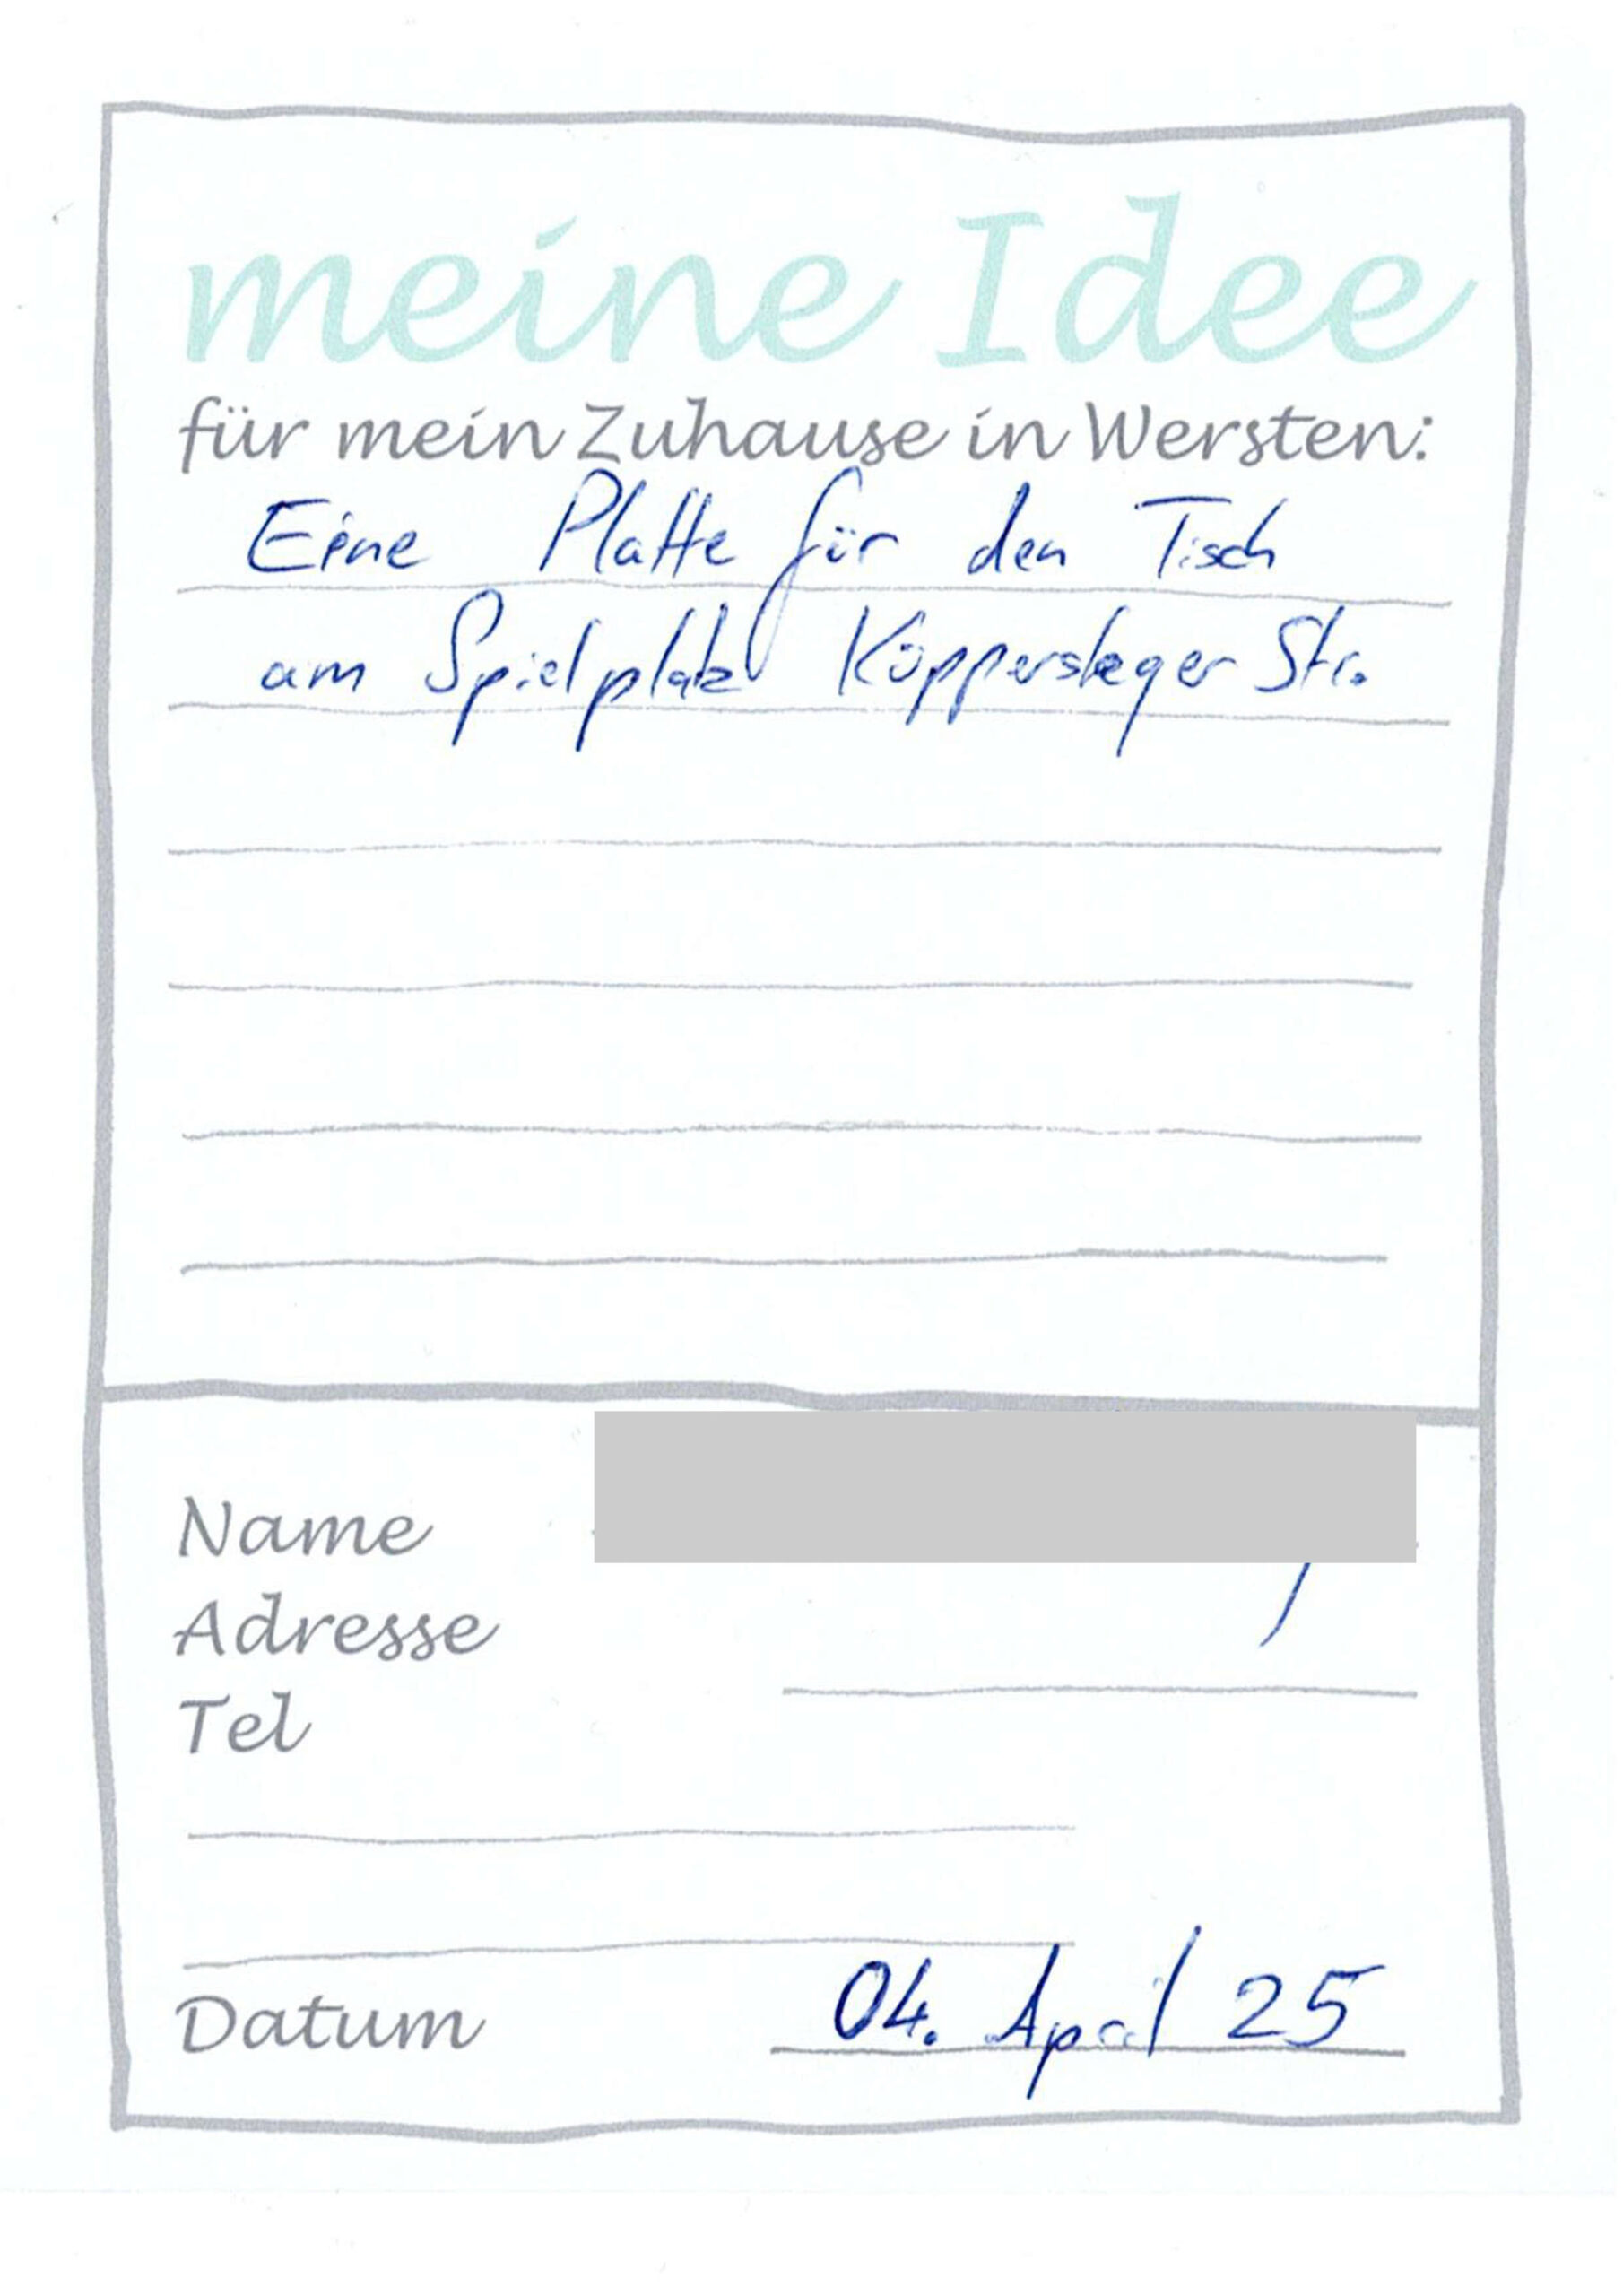 meine Idee
für mein Zuhause in Wersten:
Eine Platte für den Tisch
am Spielplatz Köppersteger Str.
Name
Adresse
Tel
Datum 04. April 25